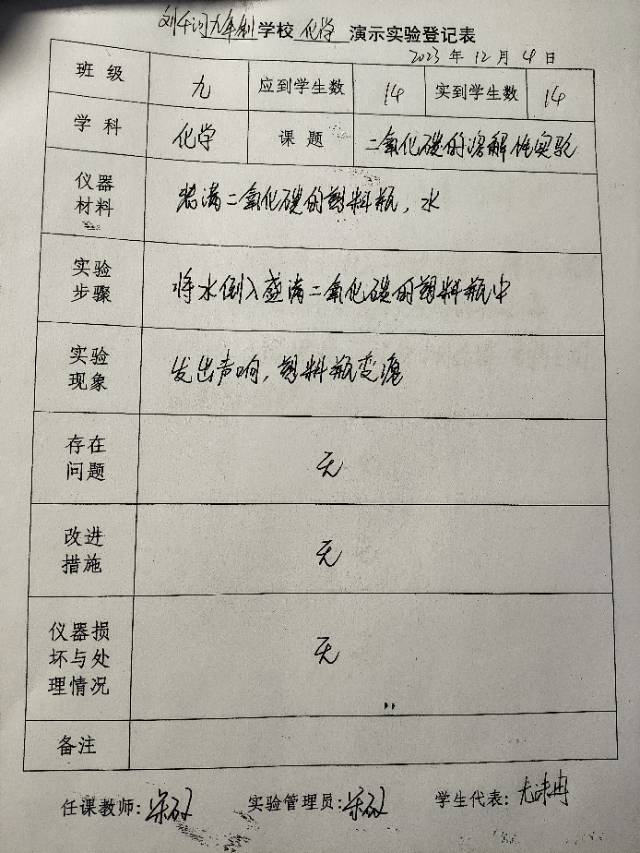 九年制学校 化学 演示实验登记表
2023 年 12 月 4 日
班级 九 应到学生数 14 实到学生数 14
学科 化学 课题 二氧化碳的溶解性实验
仪器
材料
装满二氧化碳的塑料瓶，水
实验
步骤
将水倒入盛满二氧化碳的塑料瓶中
实验
现象
发出声响，塑料瓶变瘪
存在
问题
无
改进
措施
无
仪器损
坏与处
理情况
无
备注
任课教师： 实验管理员： 学生代表：